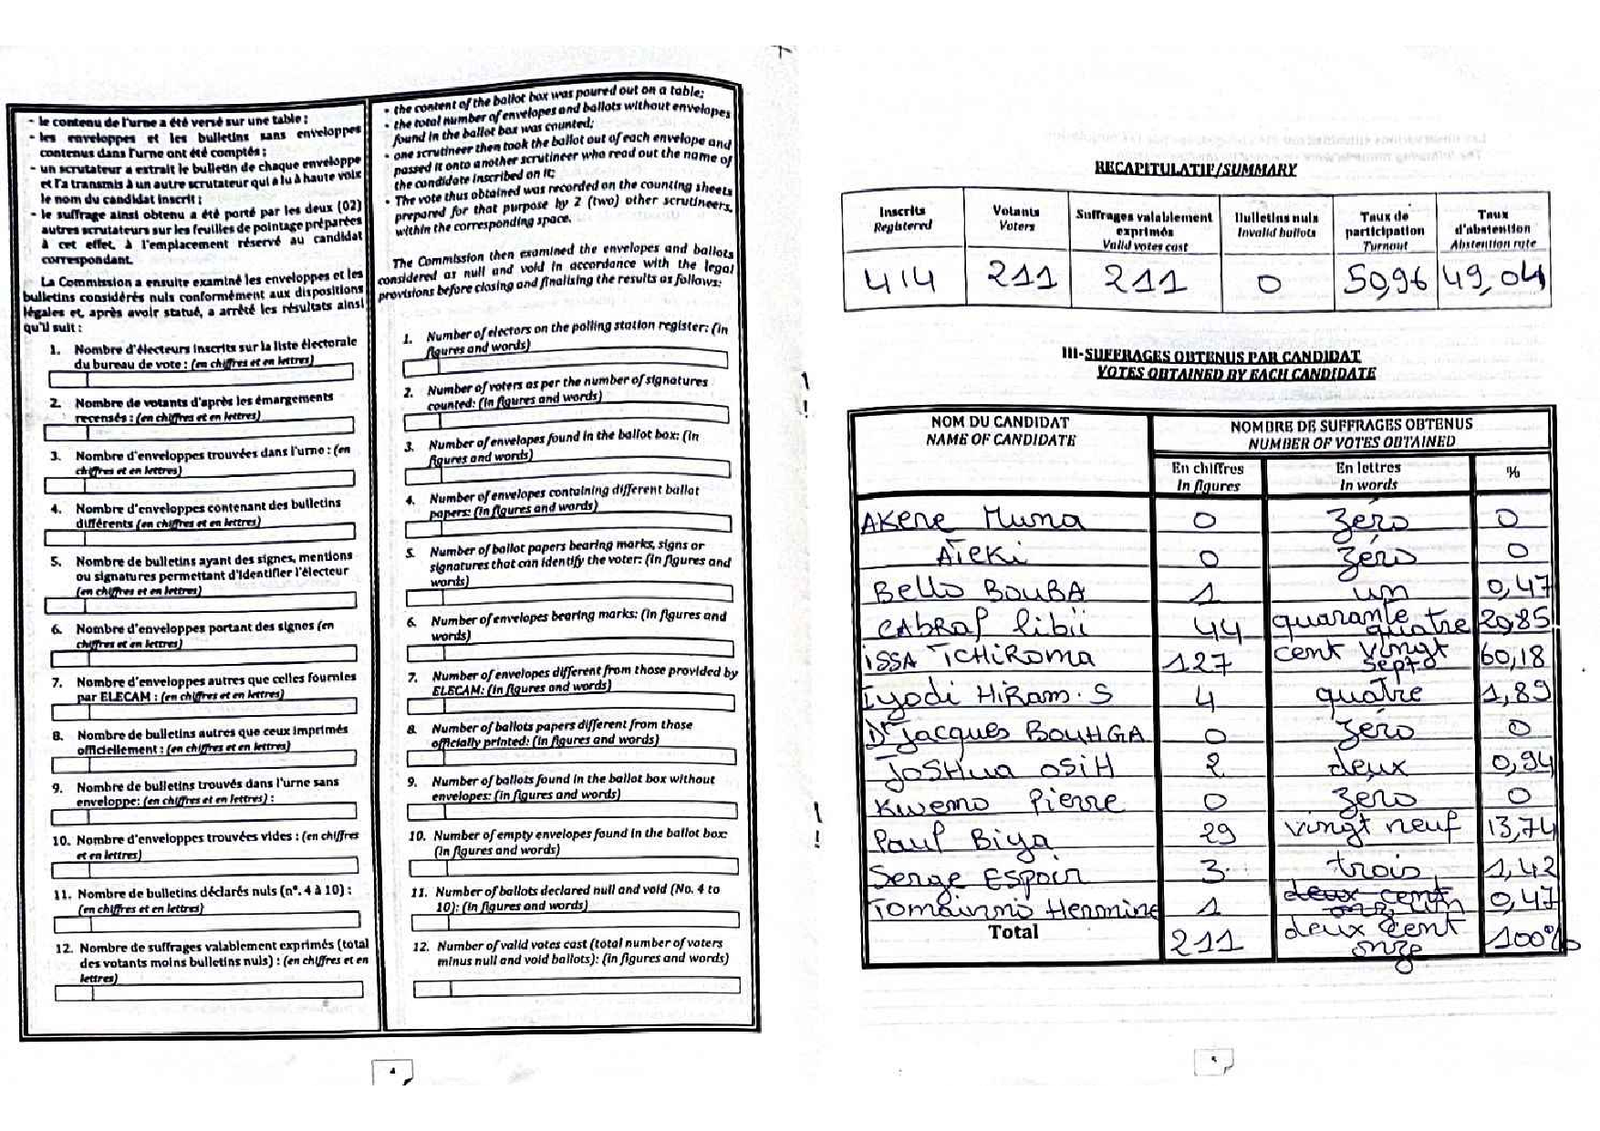 - le contenu de l'urne a été versé sur une table ;
- les enveloppes et les bulletins sans enveloppes
contenus dans l'urne ont été comptés ;
- un scrutateur a extrait le bulletin de chaque enveloppe
et l'a transmis à un autre scrutateur qui a lu à haute voix
le nom du candidat inscrit ;
- le suffrage ainsi obtenu a été porté par les deux (02)
autres scrutateurs sur les feuilles de pointage préparées
à cet effet, à l'emplacement réservé au candidat
correspondant.
La Commission a ensuite examiné les enveloppes et les
bulletins considérés nuls conformément aux dispositions
légales et, après avoir statué, a arrêté les résultats ainsi
qu'il suit :
1. Nombre d'électeurs inscrits sur la liste électorale
du bureau de vote : (en chiffres et en lettres)
2. Nombre de votants d'après les émargements
recensés : (en chiffres et en lettres)
3. Nombre d'enveloppes trouvées dans l'urne : (en
chiffres et en lettres)
4. Nombre d'enveloppes contenant des bulletins
différents (en chiffres et en lettres)
5. Nombre de bulletins ayant des signes, mentions
ou signatures permettant d'identifier l'électeur
(en chiffres et en lettres)
6. Nombre d'enveloppes portant des signes (en
chiffres et en lettres)
7. Nombre d'enveloppes autres que celles fournies
par ELECAM : (en chiffres et en lettres)
8. Nombre de bulletins autres que ceux imprimés
officiellement : (en chiffres et en lettres)
9. Nombre de bulletins trouvés dans l'urne sans
enveloppe: (en chiffres et en lettres) :
10. Nombre d'enveloppes trouvées vides : (en chiffres
et en lettres)
11. Nombre de bulletins déclarés nuls (n°. 4 à 10) :
(en chiffres et en lettres)
12. Nombre de suffrages valablement exprimés (total
des votants moins bulletins nuls) : (en chiffres et en
lettres)
• the content of the ballot box was poured out on a table;
• the total number of envelopes and ballots without envelopes
found in the ballot box was counted;
• one scrutineer then took the ballot out of each envelope and
passed it onto another scrutineer who read out the name of
the candidate inscribed on it;
• The vote thus obtained was recorded on the counting sheets
prepared for that purpose by 2 (two) other scrutineers,
within the corresponding space.
The Commission then examined the envelopes and ballots
considered as null and void in accordance with the legal
provisions before closing and finalising the results as follows:
1. Number of electors on the polling station register: (in
figures and words)
2. Number of voters as per the number of signatures
counted: (in figures and words)
3. Number of envelopes found in the ballot box: (in
figures and words)
4. Number of envelopes containing different ballot
papers: (in figures and words)
5. Number of ballot papers bearing marks, signs or
signatures that can identify the voter: (in figures and
words)
6. Number of envelopes bearing marks: (in figures and
words)
7. Number of envelopes different from those provided by
ELECAM: (in figures and words)
8. Number of ballots papers different from those
officially printed: (in figures and words)
9. Number of ballots found in the ballot box without
envelopes: (in figures and words)
10. Number of empty envelopes found in the ballot box:
(in figures and words)
11. Number of ballots declared null and void (No. 4 to
10): (in figures and words)
12. Number of valid votes cast (total number of voters
minus null and void ballots): (in figures and words)
4
RECAPITULATIF/SUMMARY
Inscrits Registered | Votants Voters | Suffrages valablement exprimés Valid votes cast | Bulletins nuls Invalid ballots | Taux de participation Turnout | Taux d'abstention Abstention rate
414 | 211 | 211 | 0 | 50,96 | 49,04
III-SUFFRAGES OBTENUS PAR CANDIDAT
VOTES OBTAINED BY EACH CANDIDATE
NOM DU CANDIDAT NAME OF CANDIDATE | NOMBRE DE SUFFRAGES OBTENUS NUMBER OF VOTES OBTAINED
En chiffres In figures | En lettres In words | %
AKERE Muna | 0 | Zéro | 0
ATEKI | 0 | zéro | 0
Bello BOUBA | 1 | un | 0,47
CABRAL libii | 44 | quarante quatre | 20,85
iSSA TCHiROMA | 127 | cent vingt sept | 60,18
Iyodi HiRam. S | 4 | quatre | 1,89
Dr Jacques BOUHGA | 0 | zéro | 0
JoSHua OSiH | 2 | deux | 0,94
Kwemo Pierre | 0 | zéro | 0
Paul Biya | 29 | vingt neuf | 13,74
Serge ESPoir | 3 | trois | 1,42
Tomaïnmo Hermine | 1 | un | 0,47
Total | 211 | deux cent onze | 100%
5